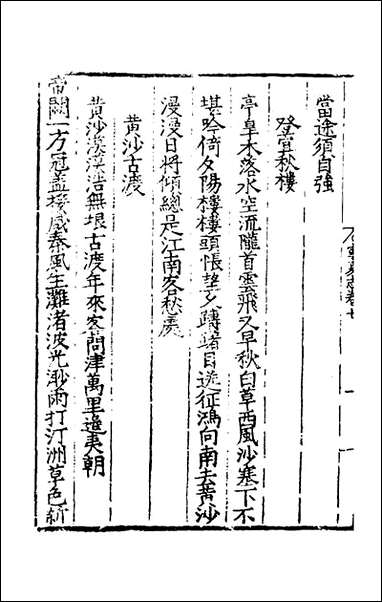 當途須自強
登宜秋樓
亭臯木落水空流隴首雲飛又早秋白草西風沙塞下不
堪吟倚夕陽樓樓頭悵望久躊躇目送征鴻向南去黃沙
漫漫日將傾總是江南客愁處
黃沙古渡
黃沙漠漠浩無垠古渡年來客問津萬里邊夷朝
帝闕一方冠蓋接咸秦風生灘渚波光渺雨打汀洲草色新